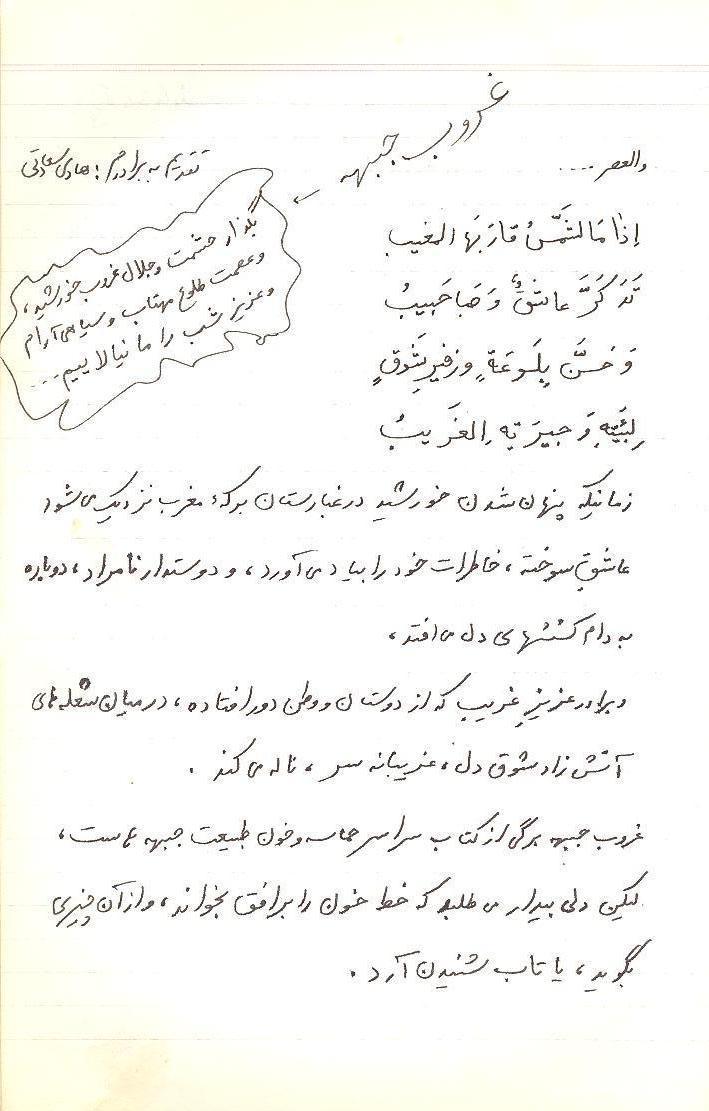 غروب جبهه
والعصر ....
تقدیم به برادرم : هادی سعادتی
بگذار حشمت و جلال غروب خورشید ،
و عصمت طلوع مهتاب و سیاهی آرام
و عزیز شب را ما نیالاییم ....
إِذٰا مَا لشَّمْسُ قَارَبَهَا المغیب
تَذَکَّرَ عاشقٌ وَ صَبا حَبیبُ
وَ حَسَّنَ بِلَوعَةٍ وزفیرِ بِشَوقٍ
وَ جیرَ تِهِ الغَریبُ
زمانیکه پنهان شدن خورشید در غبارستان برکهٔ مغرب نزدیک می شود
عاشق سوخته ، خاطرات خود را بیاد می آورد ، و دوستدار نامراد ، دوباره
به دام کششهای دل می افتد ،
و برادر عزیزِ غریب که از دوستان و وطن دور افتاده ، در میان شعله های
آتش زاد شوق دل ، غریبانه سر ، ناله می کند .
غروب جبهه برگی از کتاب سراسر حماسه و خون طبیعت جبهه هاست ،
لیکن دلی بیدار می طلبد که خط خون را بر افق بخواند ، و از آن چیزی
بگوید ، یا تاب شنیدن آرد .